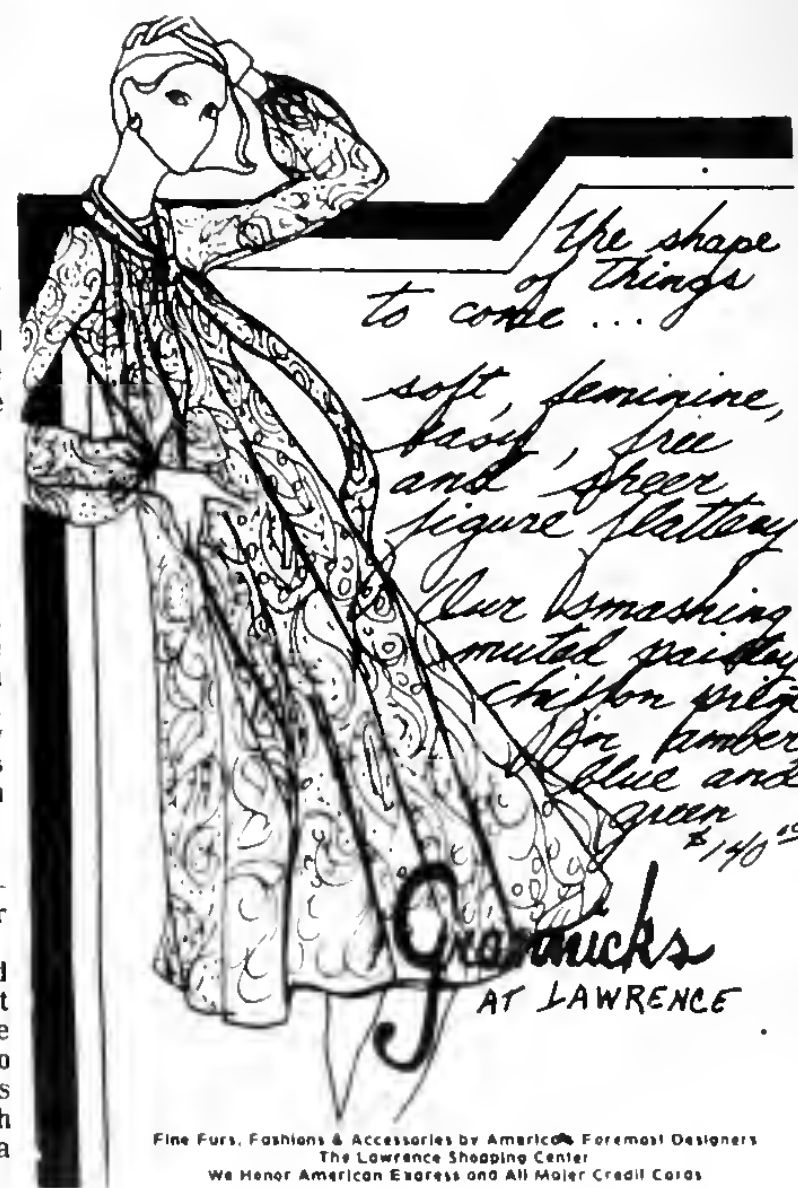 The shape
of things
to come ...
soft, feminine,
easy, free
and sheer
figure flattery
Our smashing
muted paisley
chiffon
in
blue and
green
$140.00
AT LAWRENCE
Fine Furs, Fashions & Accessories by America's Foremost Designers
The Lawrence Shopping Center
We Honor American Express and All Major Credit Cards